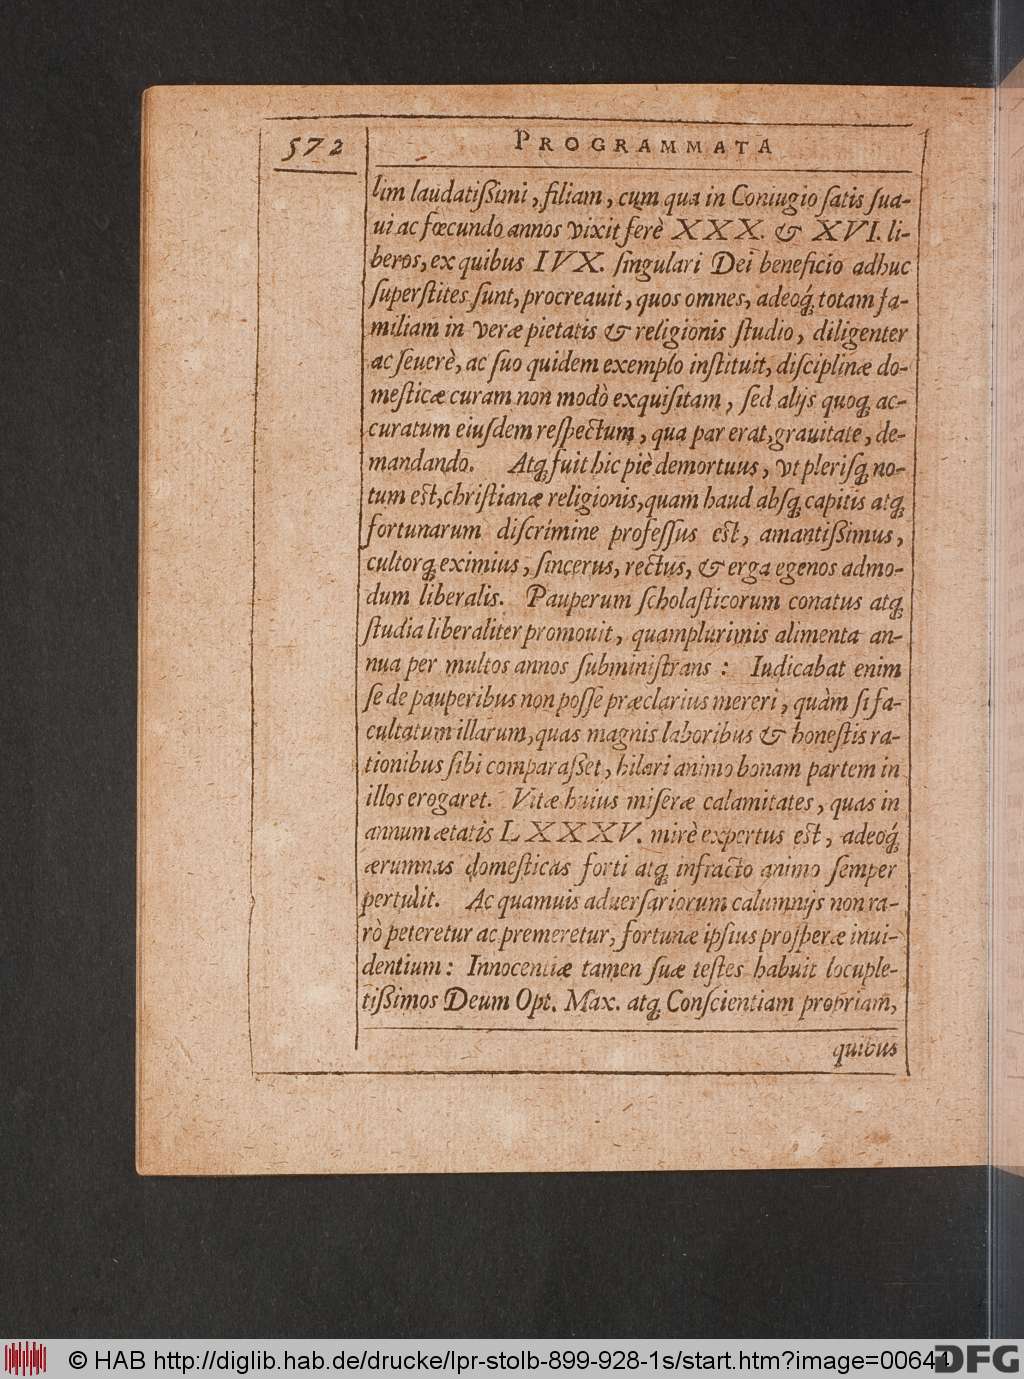 572
PROGRAMMATA
lim laudatißimi, filiam, cum qua in Coniugio ſatis ſua-
ui ac fœcundo annos vixit ferè XXX. & XVI. li-
beros, ex quibus IVX. ſingulari Dei beneficio adhuc
ſuperſtites ſunt, procreauit, quos omnes, adeoq́; totam fa-
miliam in veræ pietatis & religionis ſtudio, diligenter
ac ſeuerè, ac ſuo quidem exemplo inſtituit, diſciplinæ do-
meſticæ curam non modò exquiſitam, ſed alijs quoq; ac-
curatum eiuſdem reſpectum, qua par erat, grauitate, de-
mandando. Atq; fuit hic piè demortuus, vt pleriſq; no-
tum est, chriſtianæ religionis, quam haud abſq; capitis atq;
fortunarum diſcrimine profeſſus est, amantißimus,
cultorq; eximius, ſincerus, rectus, & erga egenos admo-
dum liberalis. Pauperum ſcholaſticorum conatus atq;
ſtudia liberaliter promouit, quamplurimis alimenta an-
nua per multos annos ſubminiſtrans : Iudicabat enim
ſe de pauperibus non poſſe præclarius mereri, quàm ſi fa-
cultatum illarum, quas magnis laboribus & honeſtis ra-
tionibus ſibi comparaßet, hilari animo bonam partem in
illos erogaret. Vitæ huius miſeræ calamitates, quas in
annum ætatis LXXXV. mirè expertus est, adeoq́;
ærumnas domeſticas forti atq; infracto animo ſemper
pertulit. Ac quamuis aduerſariorum calumnijs non ra-
rò peteretur ac premeretur, fortunæ ipſius proſperæ inui-
dentium : Innocentiæ tamen ſuæ teſtes habuit locuple-
tißimos Deum Opt. Max. atq; Conſcientiam propriam,
quibus
© HAB http://diglib.hab.de/drucke/lpr-stolb-899-928-1s/start.htm?image=00644
DFG